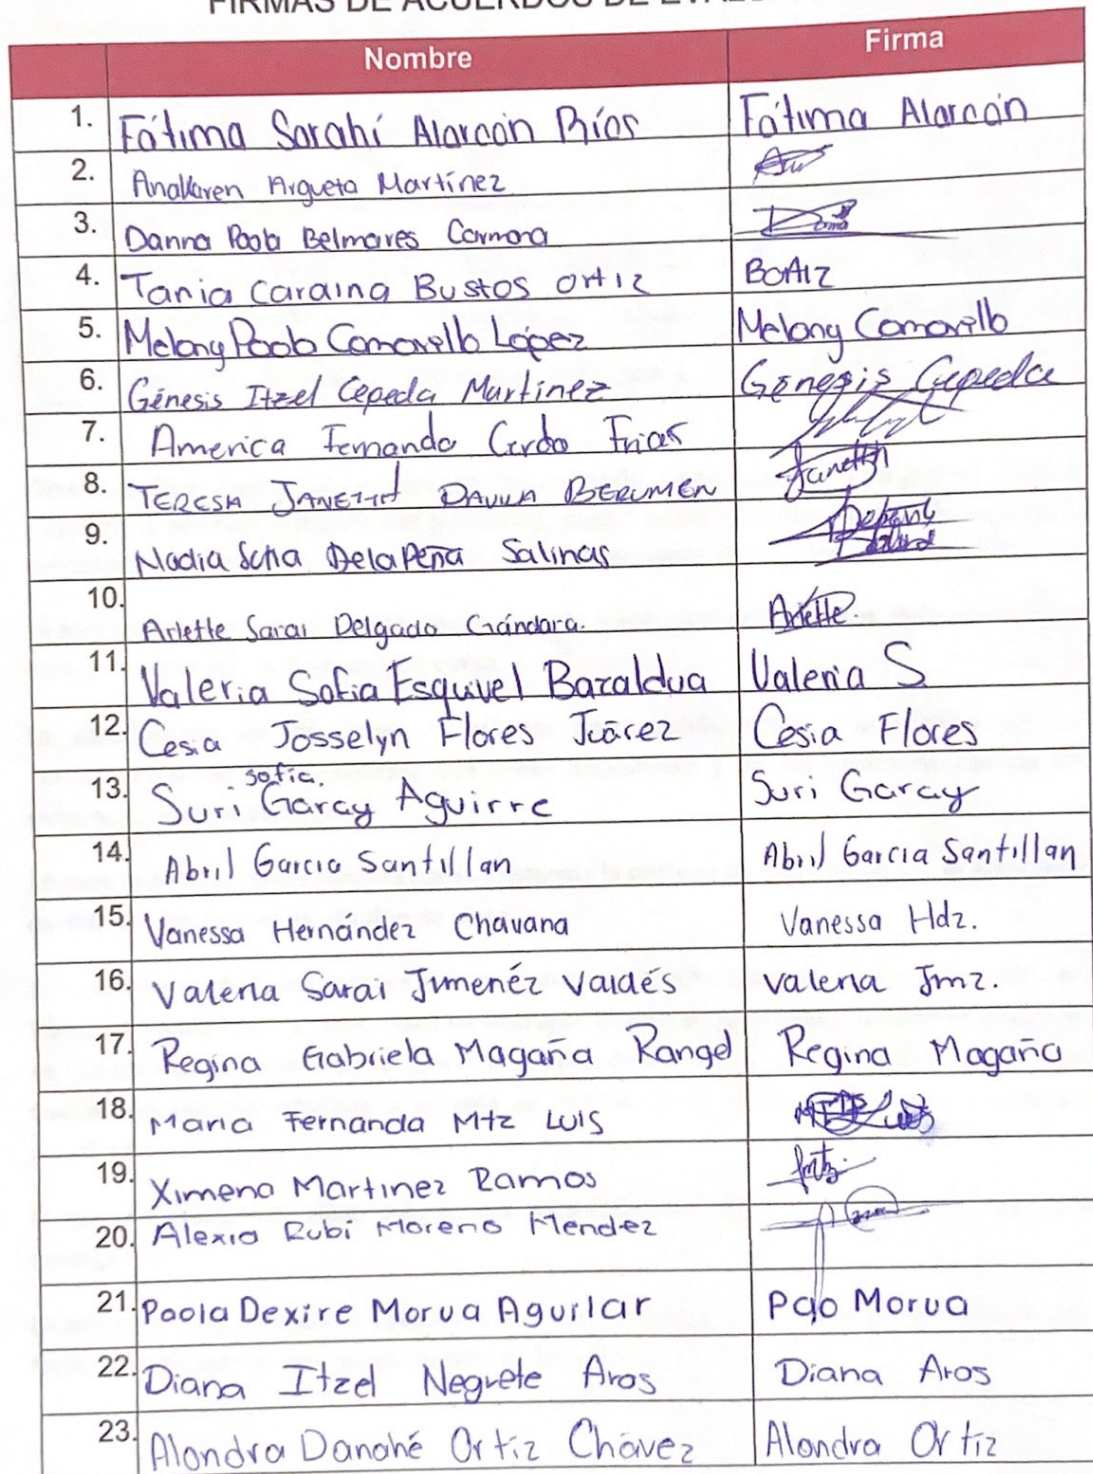 FIRMAS DE ACUERDOS DE
Nombre Firma
1. Fátima Sarahí Alarcón Ríos Fátima Alarcón
2. AnaKaren Argueta Martínez
3. Danna Paola Belmares Carmona
4. Tania Caraina Bustos Ortiz
5. Melany Paola Camarillo López Melany Camarillo
6. Génesis Itzel Cepeda Martínez Génesis Cepeda
7. America Fernanda Frias
8. TERESA JANETTH DAVILA BERUMEN Janetth
9. Nadia Sofia DelaPeña Salinas
10. Arlette Sarai Delgado Gándara. Arlette.
11. Valeria Sofia Esquivel Bazaldua Valeria S
12. Cesia Josselyn Flores Juárez Cesia Flores
13. Suri Sofia. Garay Aguirre Suri Garay
14. Abril Garcia Santillan Abril Garcia Santillan
15. Vanessa Hernández Chavana Vanessa Hdz.
16. Valeria Sarai Jimenéz Valdés Valeria Jmz.
17. Regina Gabriela Magaña Rangel Regina Magaña
18. Maria Fernanda Mtz Luis
19. Ximena Martinez Ramos
20. Alexia Rubí Moreno Mendez
21. Paola Dexire Morua Aguilar Pao Morua
22. Diana Itzel Negrete Aros Diana Aros
23. Alondra Danahé Ortiz Chávez Alondra Ortiz